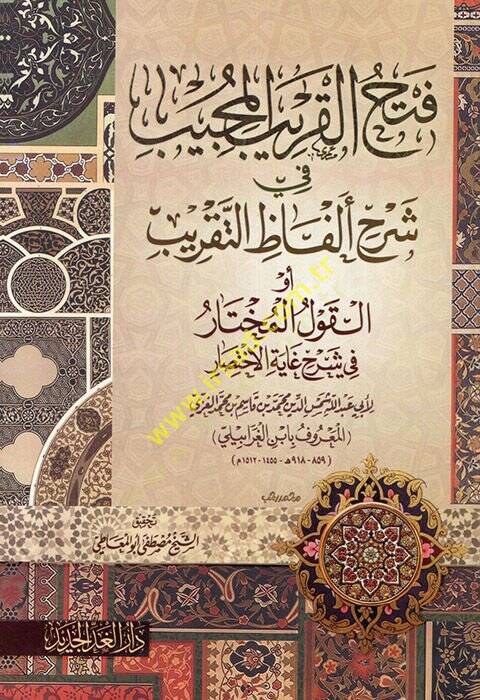 فتح القريب المجيب
في
شرح ألفاظ التقريب
أو
القول المختار
في شرح غاية الاختصار
لأبي عبد الله شمس الدين محمد بن قاسم بن محمد الغزي
(المعروف بابن الغرابيلي)
(٨٥٩-٩١٨هـ - ١٤٥٥-١٥١٢م)
تحقيق
الشيخ مصطفى أبو المعاطي
دار الغد الجديد